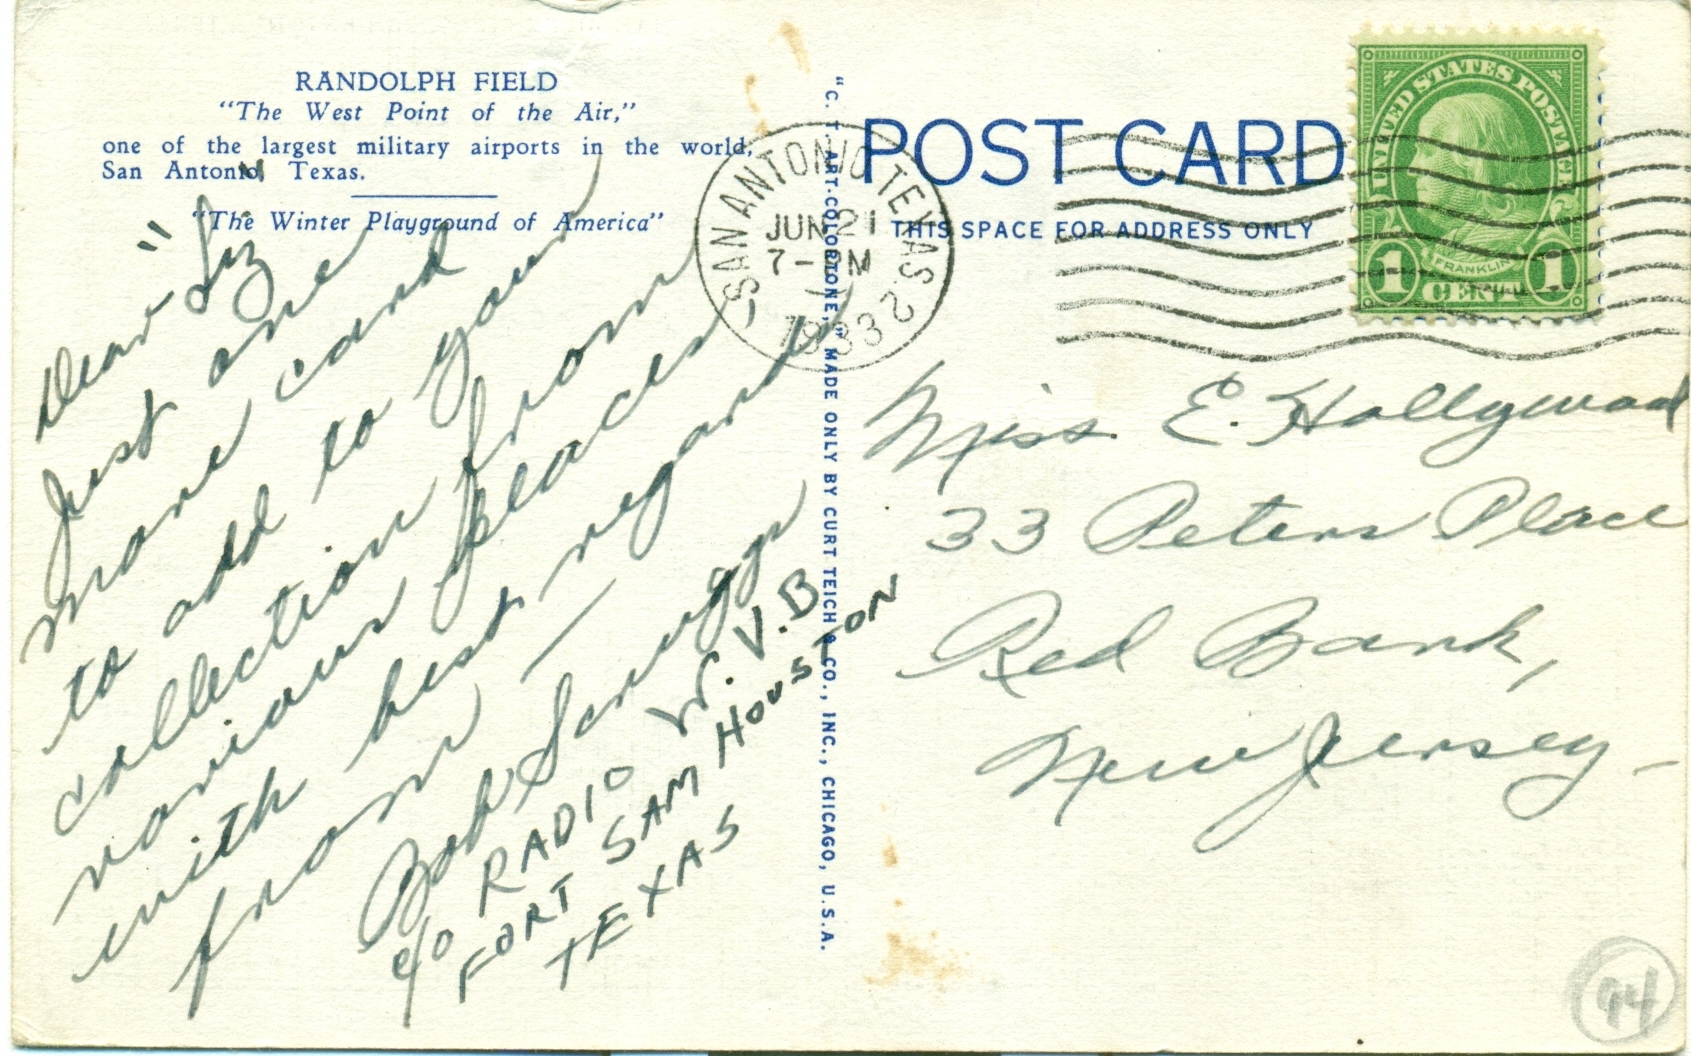 RANDOLPH FIELD
"The West Point of the Air,"
one of the largest military airports in the world,
San Antonio, Texas.
"The Winter Playground of America"
Dear "Liz"
Just one
more card
to add to your
collection from
various places
with best regards
from —
Bob Scruggs
c/o RADIO W.V.B
FORT SAM HOUSTON
TEXAS
"C. T. ART-COLORTONE," MADE ONLY BY CURT TEICH & CO., INC., CHICAGO, U.S.A.
POST CARD
THIS SPACE FOR ADDRESS ONLY
SAN ANTONIO TEXAS 2
JUN 21
7-PM
1933
UNITED STATES POSTAGE
FRANKLIN
1 CENT 1
Miss. E. Hollywood
33 Peters Place
Red Bank,
New Jersey —
94